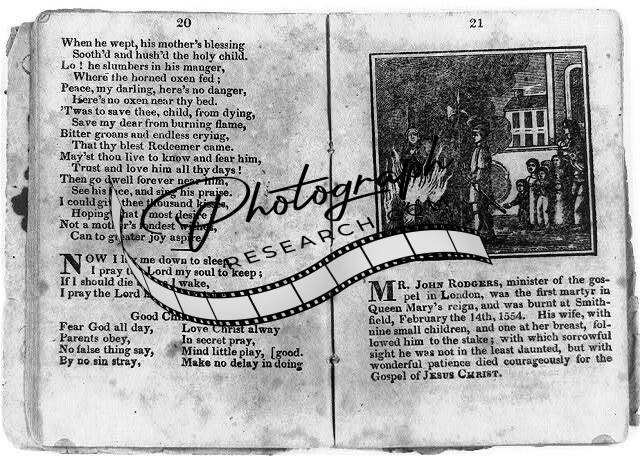 20
When he wept, his mother's blessing
Sooth'd and hush'd the holy child.
Lo ! he slumbers in his manger,
Where the horned oxen fed ;
Peace, my darling, here's no danger,
Here's no oxen near thy bed.
'Twas to save thee, child, from dying,
Save my dear from burning flame,
Bitter groans and endless crying,
That thy blest Redeemer came.
May'st thou live to know and fear him,
Trust and love him all thy days !
Then go dwell forever near him,
See his face, and sing his praise.
I could give thee thousand kisses,
Hoping what I most desire
Not a mother's fondest wishes,
Can to greater joy aspire
NOW I lay me down to sleep,
I pray the Lord my soul to keep ;
If I should die before I wake,
I pray the Lord
Good
Fear God all day,
Parents obey,
No false thing say,
By no sin stray,
Love Christ alway
In secret pray,
Mind little play, [good.
Make no delay in doing
21
MR. JOHN RODGERS, minister of the gos-
pel in London, was the first martyr in
Queen Mary's reign, and was burnt at Smith-
field, February the 14th, 1554. His wife, with
nine small children, and one at her breast, fol-
lowed him to the stake ; with which sorrowful
sight he was not in the least daunted, but with
wonderful patience died courageously for the
Gospel of JESUS CHRIST.
Photograph
RESEARCH